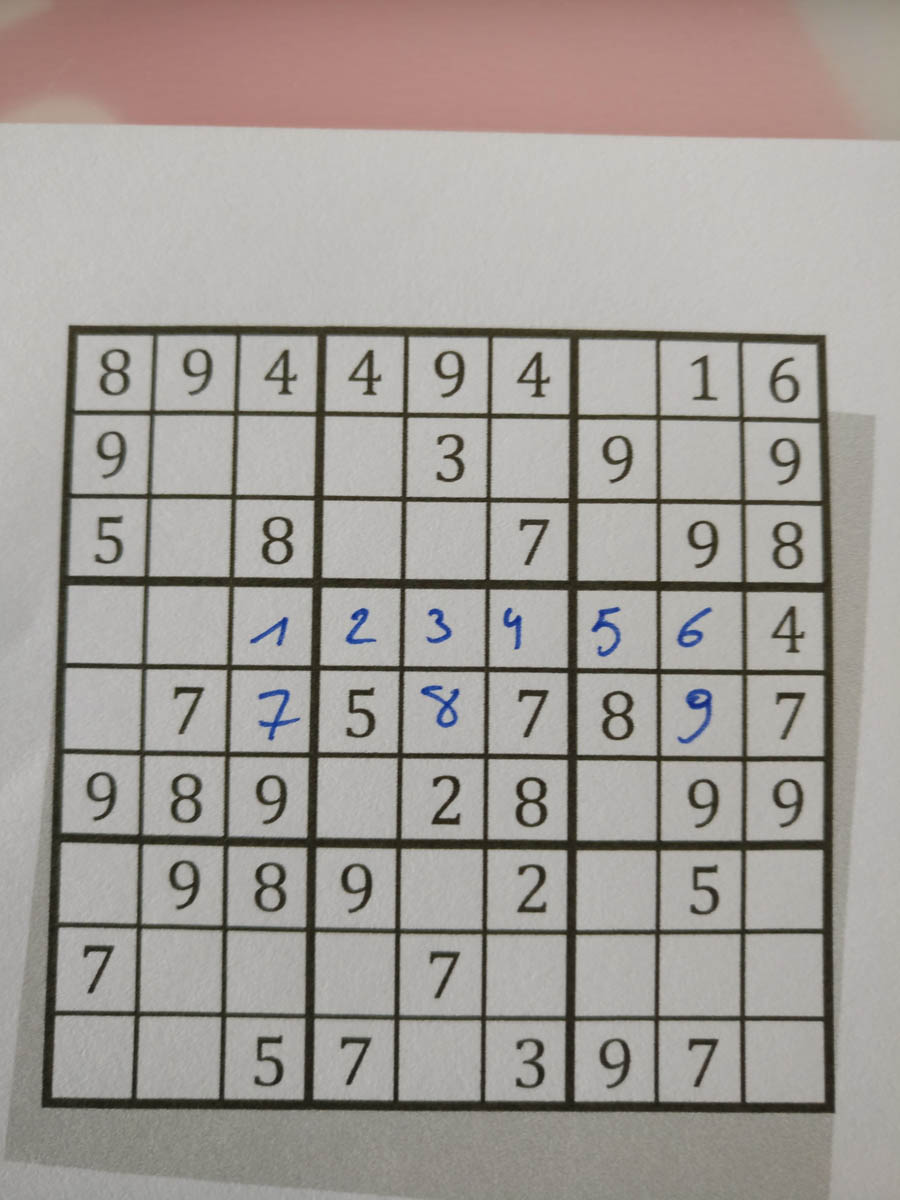 8 9 4 4 9 4 1 6
9 3 9 9
5 8 7 9 8
1 2 3 4 5 6 4
7 7 5 8 7 8 9 7
9 8 9 2 8 9 9
9 8 9 2 5
7 7
5 7 3 9 7